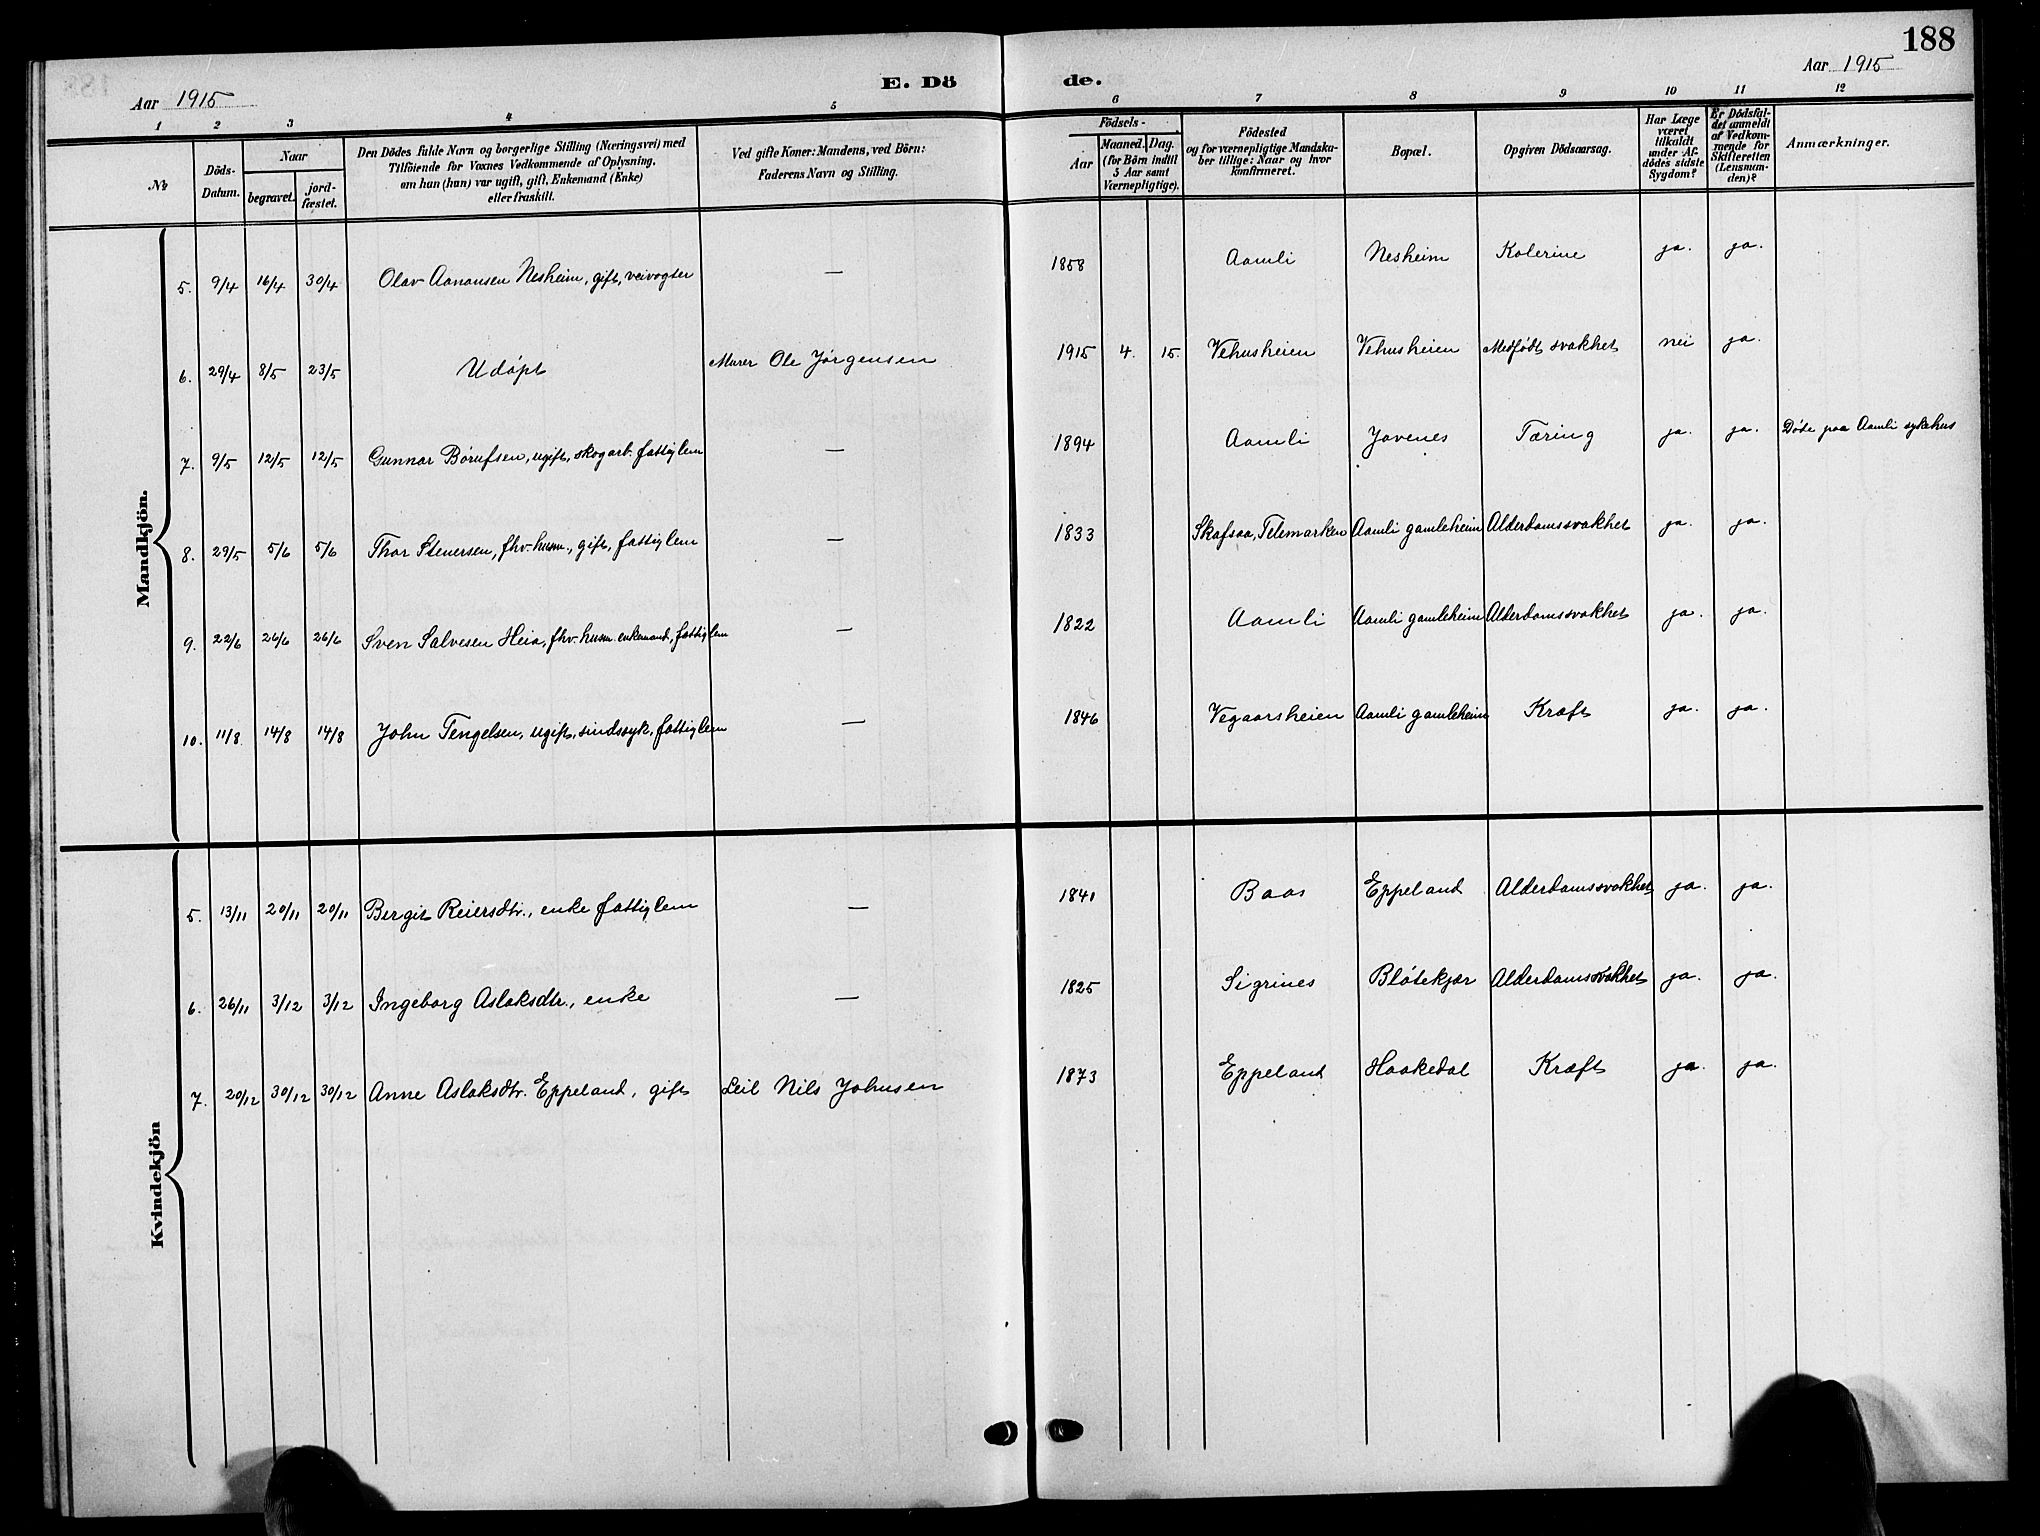 188
Aar 1915 E. Dö de. Aar 1915
1 2 3 4 5 6 7 8 9 10 11 12
No
Döds-Datum.
Naar
begravet.
jord-fæstet.
Den Dödes fulde Navn og borgerlige Stilling (Næringsvei) med
Tilföiende for Voxnes Vedkommende af Oplysning,
om han (hun) var ugift, gift, Enkemand (Enke)
eller fraskilt.
Ved gifte Koner: Mandens, ved Börn:
Faderens Navn og Stilling.
Födsels-
Aar
Maaned. Dag.
(for Börn indtil
5 Aar samt
Værnepligtige).
Födested
og for værnepligtige Mandska-
ber tillige: Naar og hvor
konfirmeret.
Bopæl.
Opgiven Dödsaarsag.
Har Læge
været
tilkaldt
under Af-
dödes sidste
Sygdom?
Er Dödsfal-
det anmeldt
af Vedkom-
mende for
Skifteretten
(Lensman-
den)?
Anmærkninger.
Mandkjön.
5. 9/4 16/4 30/4 Olav Aanonsen Nesheim, gift, veivogter — 1858 Aamli Nesheim Kolerine ja. ja.
6. 29/4 8/5 23/5 Udöpt Murer Ole Jørgensen 1915 4. 15. Vehusheien Vehusheien Medfødt svakhet nei ja.
7. 9/5 12/5 12/5 Gunnar Børufsen, ugift, skogarb. fattiglem — 1894 Aamli Jovenes Tæring ja. ja. Døde paa Aamli sykehus
8. 29/5 5/6 5/6 Thor Stenersen, fhv. husm., gift, fattiglem — 1833 Skafsaa, Telemarken Aamli gamleheim Alderdomssvakhet ja. ja.
9. 22/6 26/6 26/6 Sven Salvesen Heia, fhv. husm. enkemand, fattiglem — 1822 Aamli Aamli gamleheim Alderdomssvakhet ja. ja.
10. 11/8 14/8 14/8 John Tengelsen, ugift, sindssyk, fattiglem — 1846 Vegaarsheien Aamli gamleheim Kræft ja. ja.
Kvindekjön
5. 13/11 20/11 20/11 Bergit Reiersdtr., enke fattiglem — 1840 Baas Eppeland Alderdomssvakhet ja. ja.
6. 26/11 3/12 3/12 Ingeborg Aslaksdtr., enke — 1825 Sigrines Bløtekjær Alderdomssvakhet ja. ja.
7. 20/12 30/12 30/12 Anne Aslaksdtr. Eppeland, gift Leil Nils Johnsen 1873 Eppeland Haakedal Kræft ja. ja.